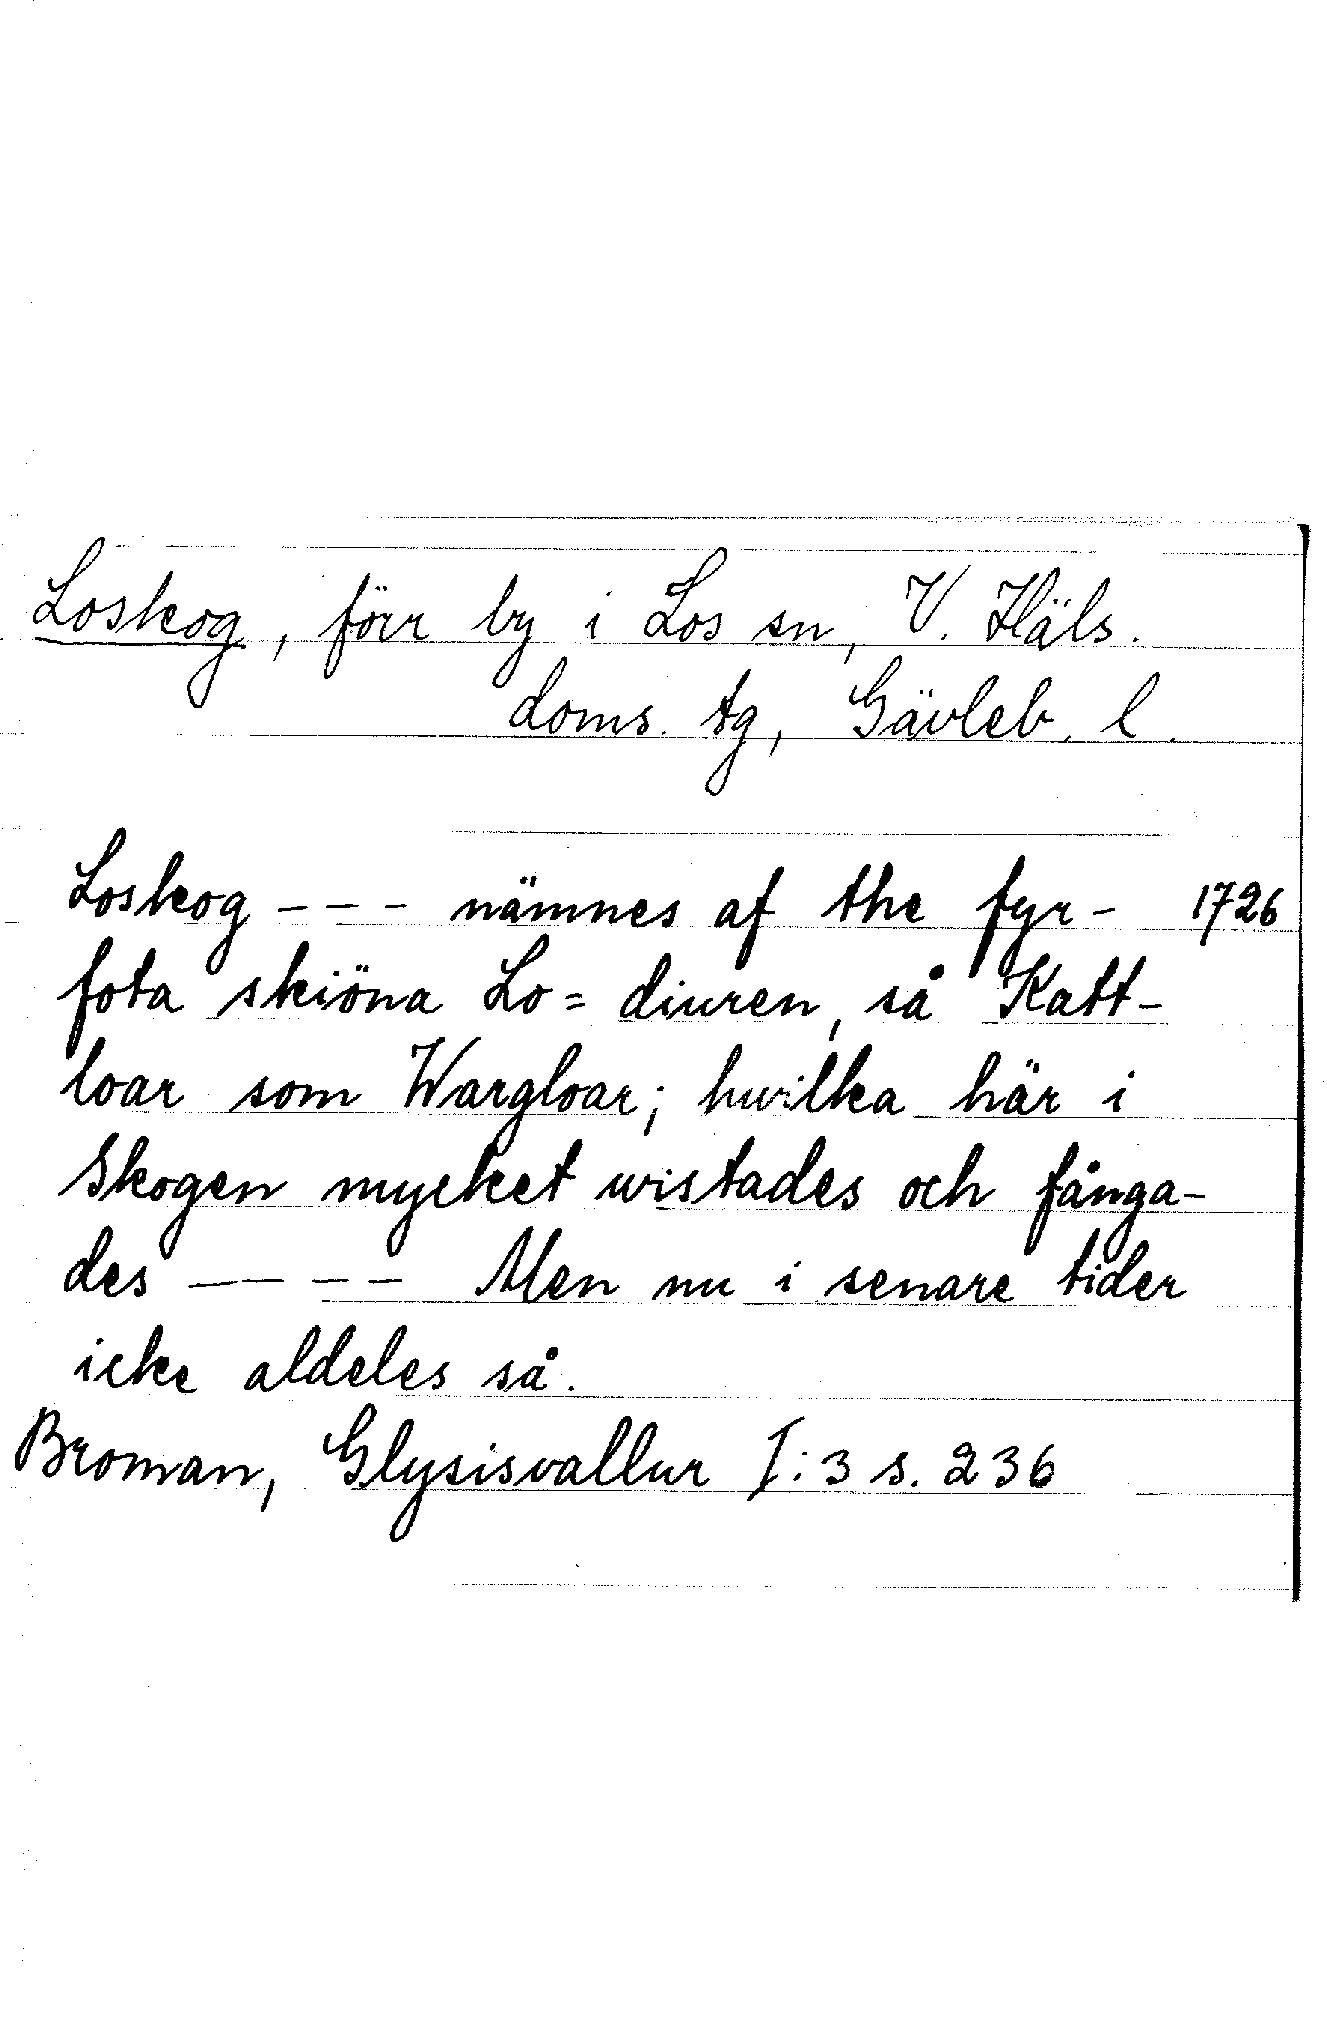 Loskog, förr by i Los sn, V. Häls.
doms. tg, Gävleb. l.
Loskog - - - nämnes af the fyr- 1726
fota skiöna Lo= diuren, så Katt-
loar som Wargloar; hwilka här i
Skogen mycket wistades och fånga-
des - - - - Men nu i senare tider
icke aldeles så.
Broman, Glysisvallur I:3 s. 236